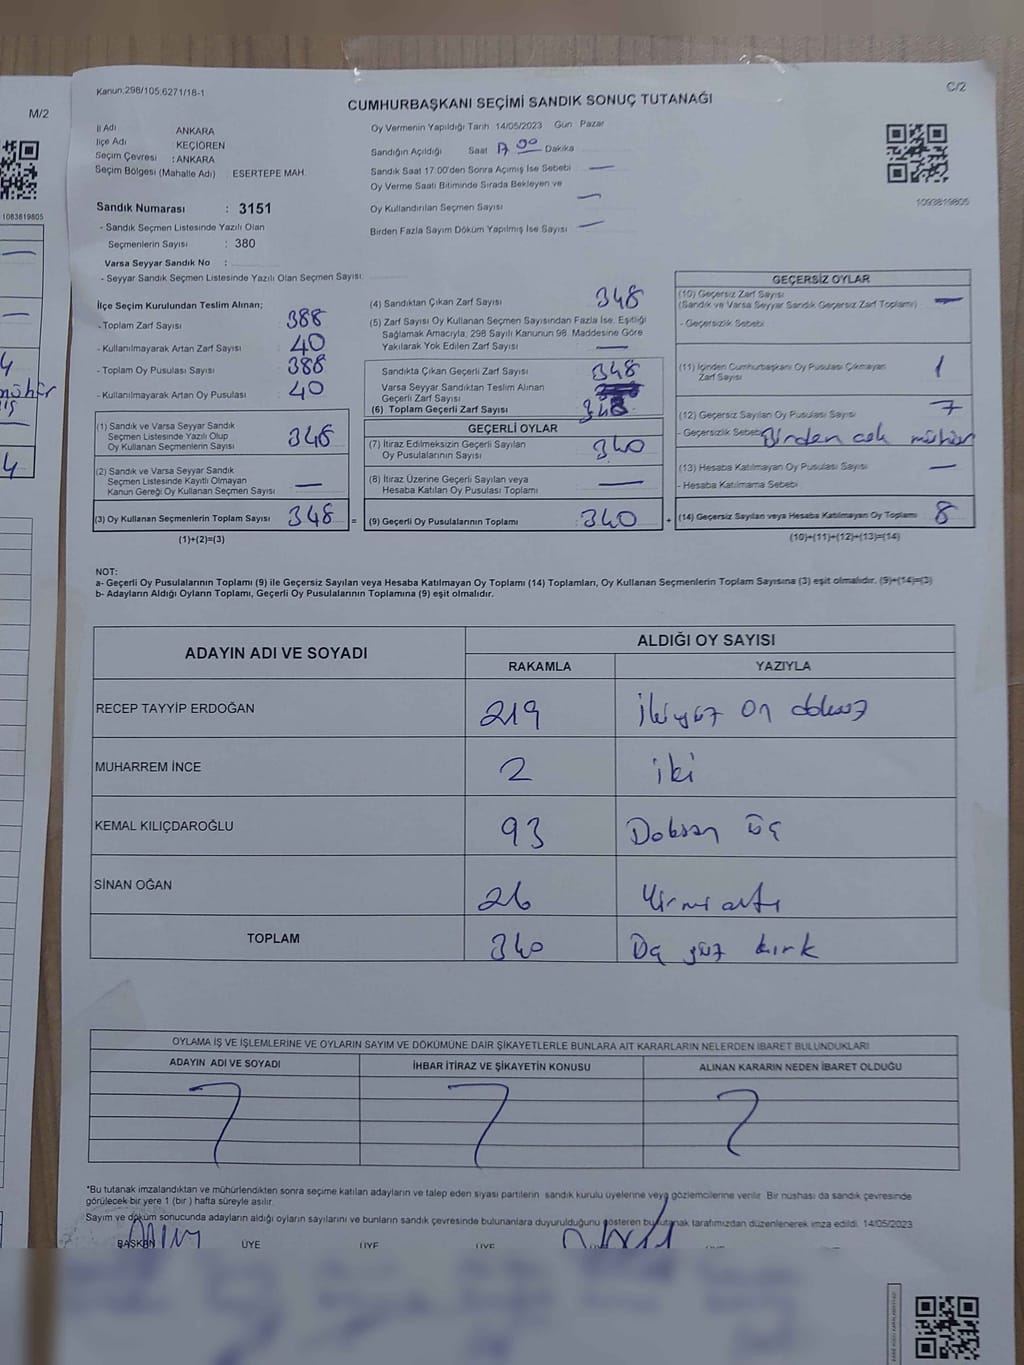 Kanun:298/105,6271/18-1
C/2
M/2
CUMHURBAŞKANI SEÇİMİ SANDIK SONUÇ TUTANAĞI
İl Adı ANKARA
İlçe Adı KEÇİÖREN
Seçim Çevresi : ANKARA
Seçim Bölgesi (Mahalle Adı) : ESERTEPE MAH.
Oy Vermenin Yapıldığı Tarih 14/05/2023 Gün Pazar
Sandığın Açıldığı Saat 17 00 Dakika
Sandık Saat 17:00'den Sonra Açımış İse Sebebi —
Oy Verme Saati Bitiminde Sırada Bekleyen ve
Oy Kullandırılan Seçmen Sayısı —
Birden Fazla Sayım Döküm Yapılmış İse Sayısı —
1083819805
1093819805
Sandık Numarası : 3151
- Sandık Seçmen Listesinde Yazılı Olan
Seçmenlerin Sayısı : 380
Varsa Seyyar Sandık No :
- Seyyar Sandık Seçmen Listesinde Yazılı Olan Seçmen Sayısı:
İlçe Seçim Kurulundan Teslim Alınan;
- Toplam Zarf Sayısı 388
- Kullanılmayarak Artan Zarf Sayısı 40
- Toplam Oy Pusulası Sayısı 388
- Kullanılmayarak Artan Oy Pusulası 40
(1) Sandık ve Varsa Seyyar Sandık
Seçmen Listesinde Yazılı Olup
Oy Kullanan Seçmenlerin Sayısı 348
(2) Sandık ve Varsa Seyyar Sandık
Seçmen Listesinde Kayıtlı Olmayan
Kanun Gereği Oy Kullanan Seçmen Sayısı —
(3) Oy Kullanan Seçmenlerin Toplam Sayısı 348 =
(1)+(2)=(3)
(4) Sandıktan Çıkan Zarf Sayısı 348
(5) Zarf Sayısı Oy Kullanan Seçmen Sayısından Fazla İse, Eşitliği
Sağlamak Amacıyla, 298 Sayılı Kanunun 98. Maddesine Göre
Yakılarak Yok Edilen Zarf Sayısı —
Sandıkta Çıkan Geçerli Zarf Sayısı 348
Varsa Seyyar Sandıktan Teslim Alınan
Geçerli Zarf Sayısı
(6) Toplam Geçerli Zarf Sayısı 348
GEÇERLİ OYLAR
(7) İtiraz Edilmeksizin Geçerli Sayılan
Oy Pusulalarının Sayısı 340
(8) İtiraz Üzerine Geçerli Sayılan veya
Hesaba Katılan Oy Pusulası Toplamı —
(9) Geçerli Oy Pusulalarının Toplamı : 340 +
GEÇERSİZ OYLAR
(10) Geçersiz Zarf Sayısı —
(Sandık ve Varsa Seyyar Sandık Geçersiz Zarf Toplamı)
- Geçersizlik Sebebi
(11) İçinden Cumhurbaşkanı Oy Pusulası Çıkmayan
Zarf Sayısı 1
(12) Geçersiz Sayılan Oy Pusulası Sayısı 7
- Geçersizlik Sebebi Birden çok mühür
(13) Hesaba Katılmayan Oy Pusulası Sayısı —
- Hesaba Katılmama Sebebi
(14) Geçersiz Sayılan veya Hesaba Katılmayan Oy Toplamı 8
(10)+(11)+(12)+(13)=(14)
NOT:
a- Geçerli Oy Pusulalarının Toplamı (9) ile Geçersiz Sayılan veya Hesaba Katılmayan Oy Toplamı (14) Toplamları, Oy Kullanan Seçmenlerin Toplam Sayısına (3) eşit olmalıdır. (9)+(14)=(3)
b- Adayların Aldığı Oyların Toplamı, Geçerli Oy Pusulalarının Toplamına (9) eşit olmalıdır.
ADAYIN ADI VE SOYADI
ALDIĞI OY SAYISI
RAKAMLA YAZIYLA
RECEP TAYYİP ERDOĞAN 219 ikiyüz on dokuz
MUHARREM İNCE 2 iki
KEMAL KILIÇDAROĞLU 93 Doksan üç
SİNAN OĞAN 26 Yirmi altı
TOPLAM 340 Üç yüz kırk
OYLAMA İŞ VE İŞLEMLERİNE VE OYLARIN SAYIM VE DÖKÜMÜNE DAİR ŞİKAYETLERLE BUNLARA AİT KARARLARIN NELERDEN İBARET BULUNDUKLARI
ADAYIN ADI VE SOYADI İHBAR İTİRAZ VE ŞİKAYETİN KONUSU ALINAN KARARIN NEDEN İBARET OLDUĞU
*Bu tutanak imzalandıktan ve mühürlendikten sonra seçime katılan adayların ve talep eden siyasi partilerin sandık kurulu üyelerine veya gözlemcilerine verilir. Bir nushası da sandık çevresinde
görülecek bir yere 1 (bir) hafta süreyle asılır.
Sayım ve döküm sonucunda adayların aldığı oyların sayılarını ve bunların sandık çevresinde bulunanlara duyurulduğunu gösteren bu tutanak tarafımızdan düzenlenerek imza edildi. 14/05/2023
BAŞKAN ÜYE ÜYE ÜYE